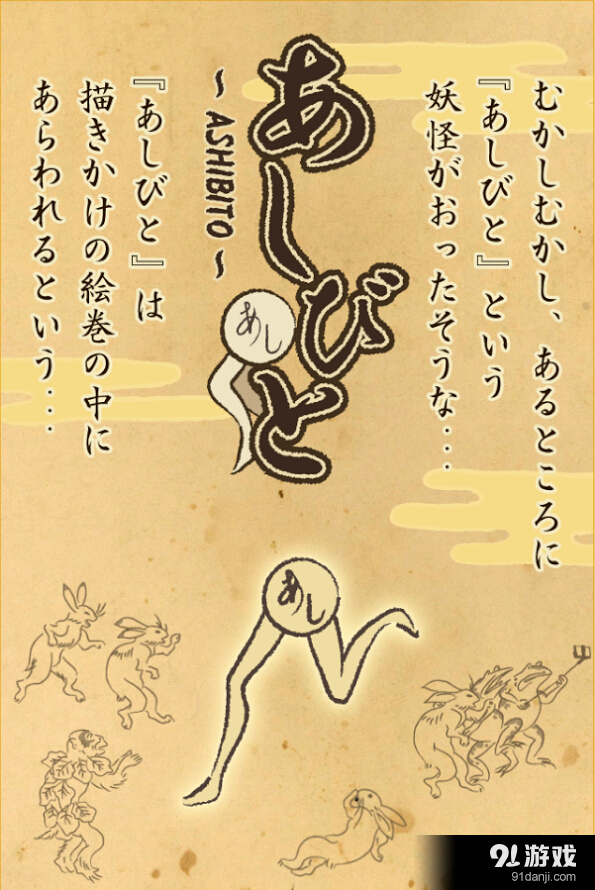 むかしむかし、あるところに
『あしびと』という
妖怪がおったそうな・・・
あしびと
～ ASHIBITO ～
あし
『あしびと』は
描きかけの絵巻の中に
あらわれるという・・・
あし
91游戏
91danji.com